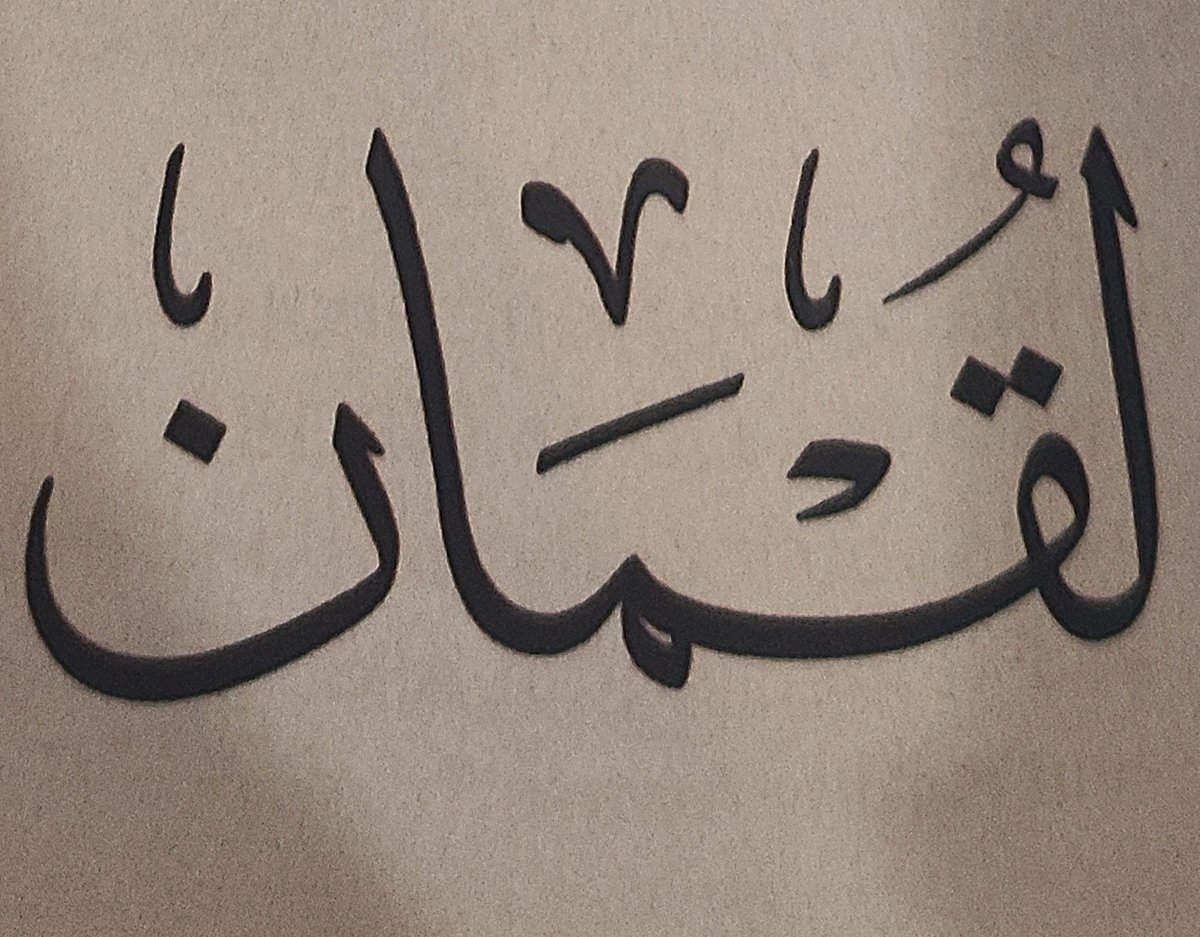 لُقْمَان